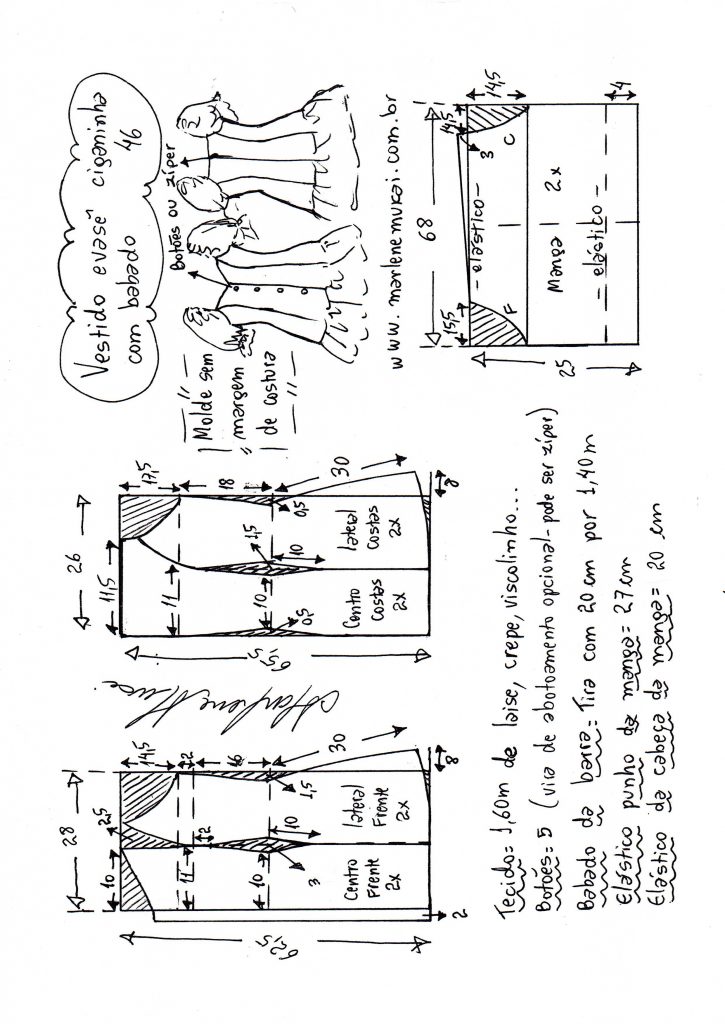 Vestido evasê ciganinha
com babado 46
Botões ou zíper
Molde sem
margem
de costura
www.marlenemukai.com.br
28
10
2,5
14,5
2
16
11
2
10
10
3
1,5
30
8
62,5
2
Centro
Frente
2x
lateral
Frente
2x
26
11,5
17,5
18
11
1,5
10
10
0,5
0,5
30
8
65,5
Centro
Costas
2x
lateral
Costas
2x
68
15,5
14,5
14,5
3
F
C
- elástico -
Manga 2x
- elástico -
25
4
Tecido = 1,60m de laise, crepe, viscolinho...
Botões = 5 (vira de abotoamento opcional - pode ser zíper)
Babado da barra = Tira com 20cm por 1,40m
Elástico punho da manga = 27cm
Elástico da cabeça da manga = 20 cm